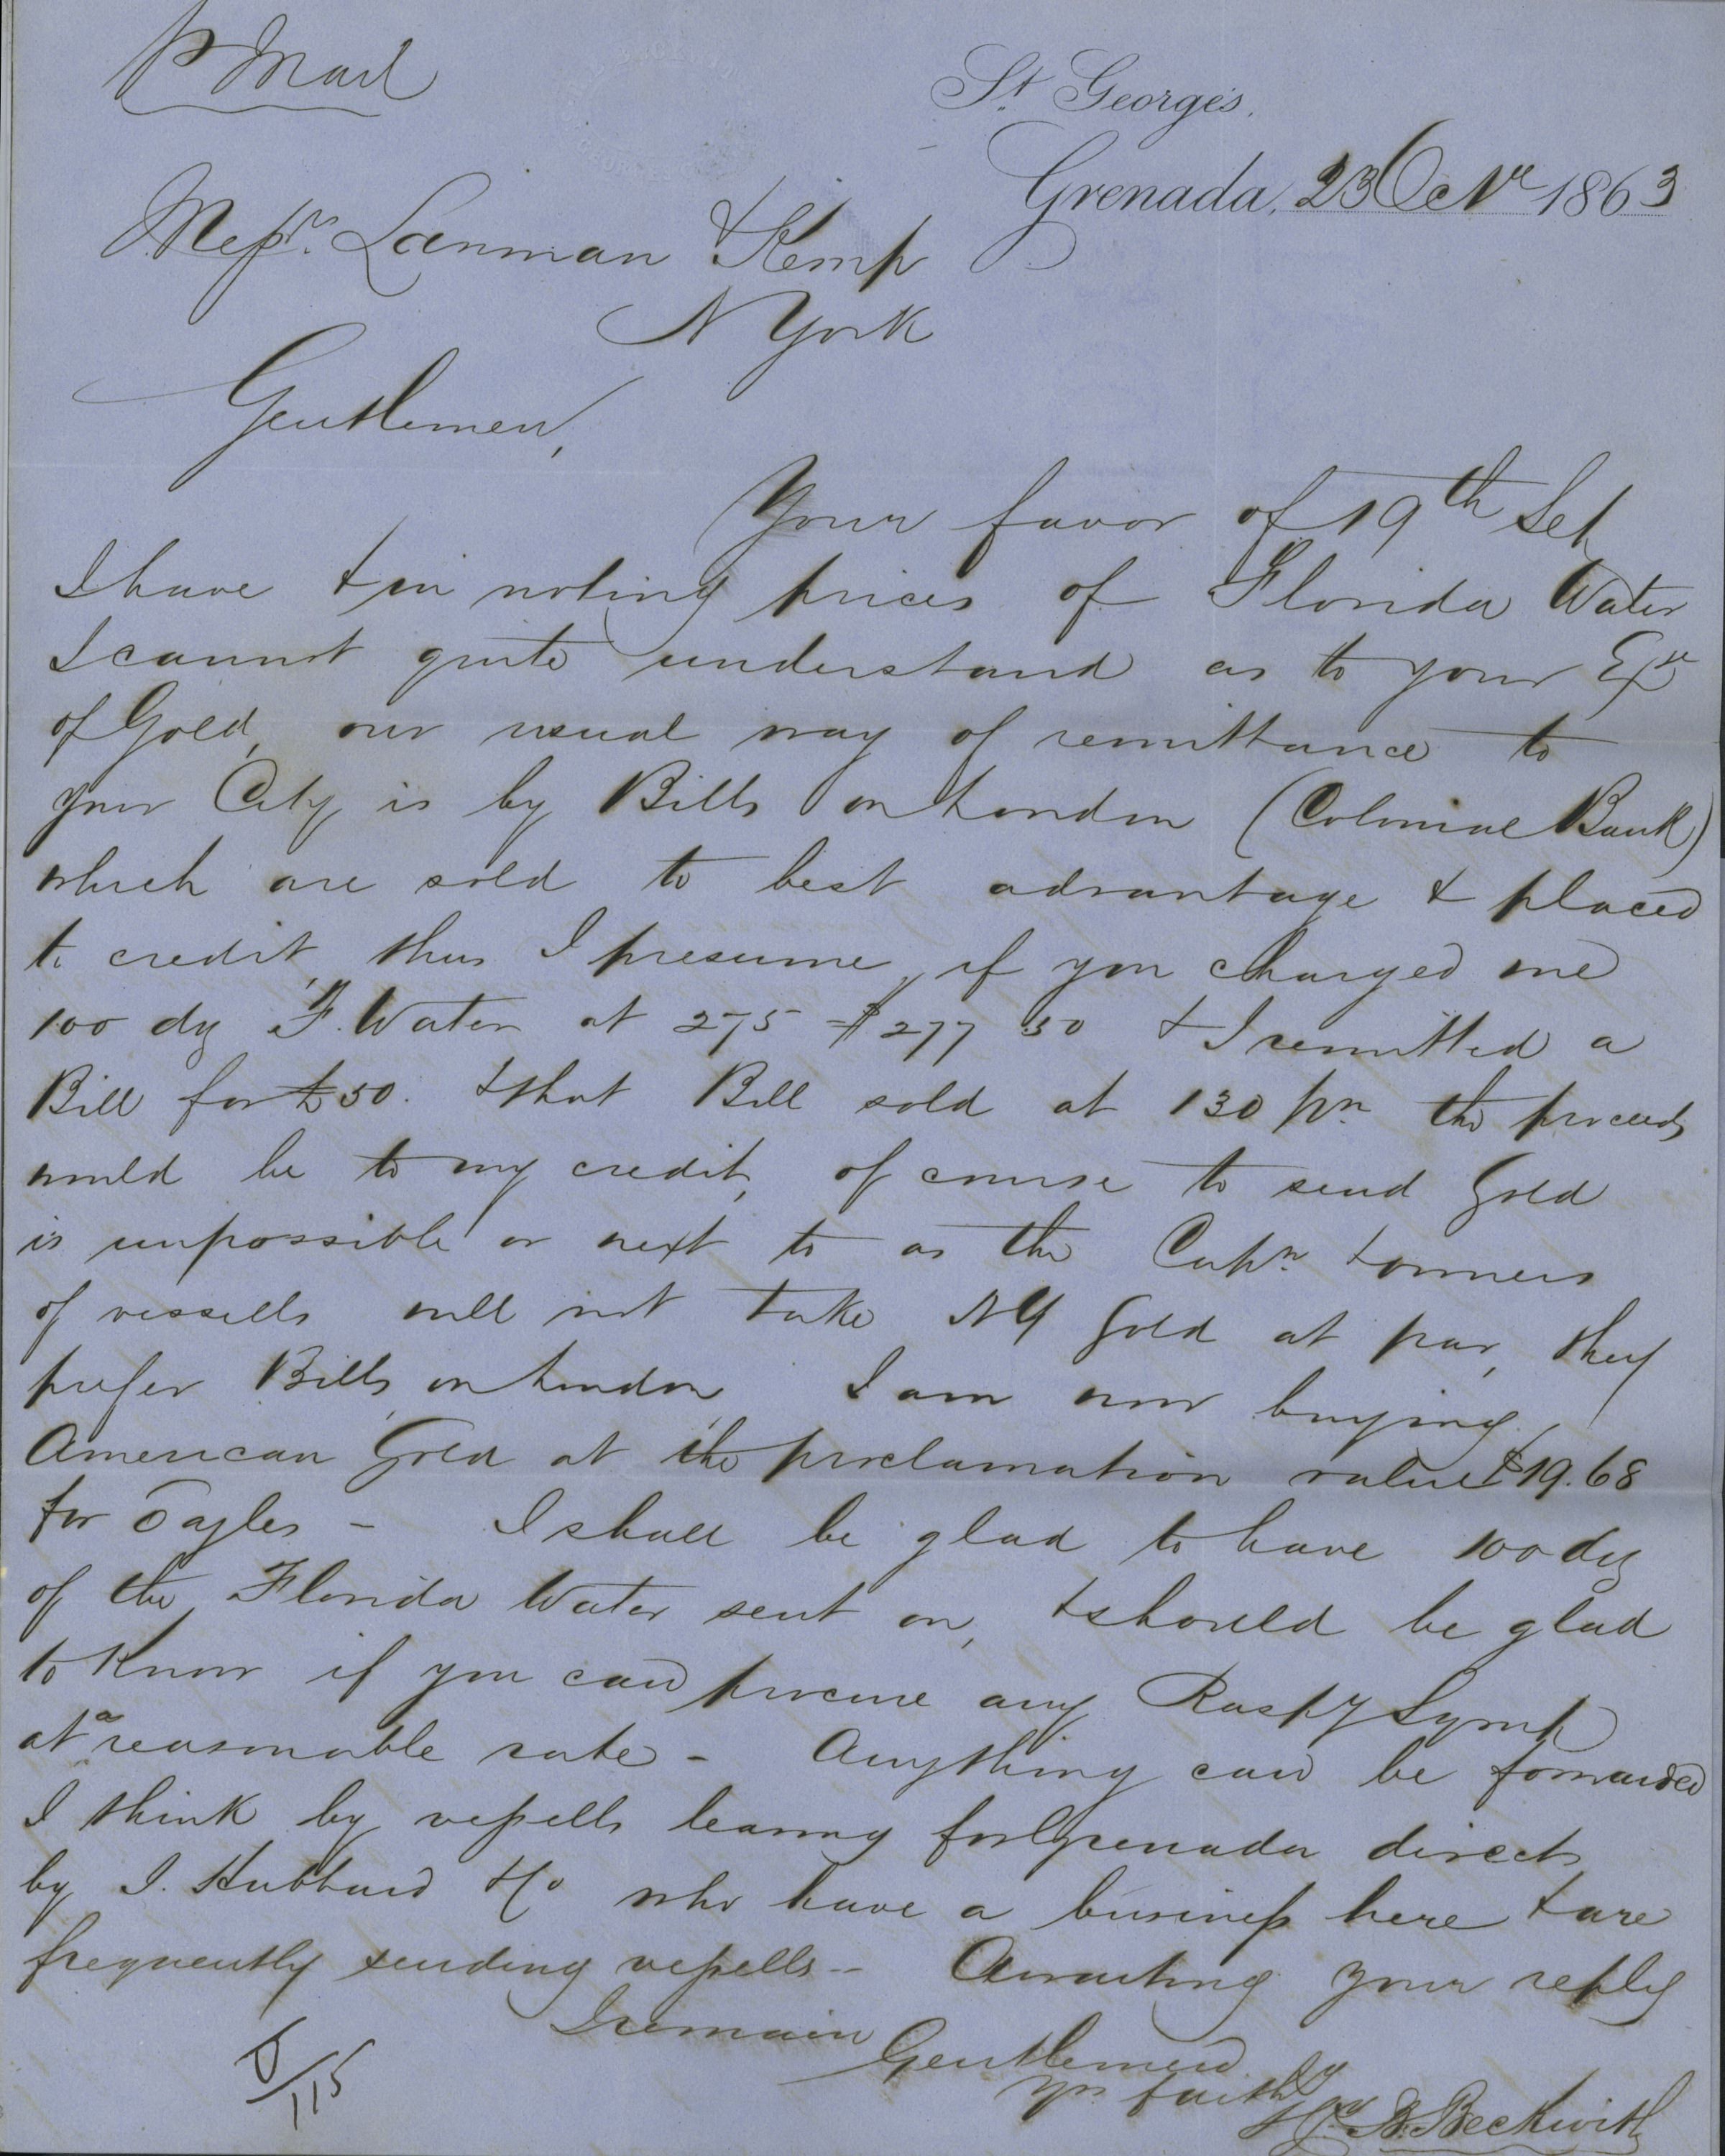 P Mail
St. Georges.
Grenada, 23 Octr 1863
Messrs. Lanman & Kemp
N York
Gentlemen,
Your favor of 19th Sept
I have & in noting prices of Florida Water
I cannot quite understand as to your Exe
of Gold, our usual way of remittance to
your City is by Bills on London (Colonial Bank)
which are sold to best advantage & placed
to credit, thus I presume, if you charged me
100 dz F. Water at 275 = $277 50 & I remitted a
Bill for £50. & that Bill sold at 130 pm. the proceeds
would be to my credit, of course to send Gold
is unpossible or next to as the Capns & owners
of vessells will not take NY Gold at par, they
prefer Bills on London I am now buying
American Gold at the proclamation value $19.68
for Eagles - I shall be glad to have 100 dz
of the Florida Water sent on, & should be glad
to know if you can procure any Raspy Syrup
at a reasonable rate - Anything can be forwarded
I think by vessells leaving for Grenada direct
by I. Hubbard & Co who have a business here & are
frequently sending vessells -- Awaiting your reply
I remain
Gentlemen
Yrs faithfy
B. Beckwith
115